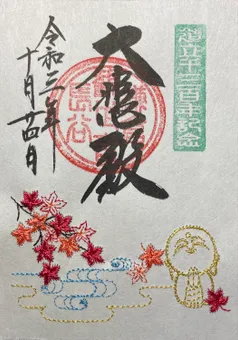 建立千三百年記念
大悲殿
令和二年
十月廿四日